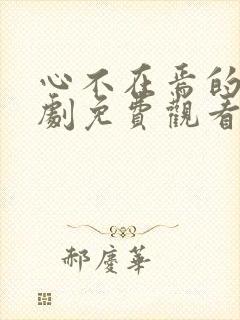 心不在焉的
劇免費觀看
郝慶華